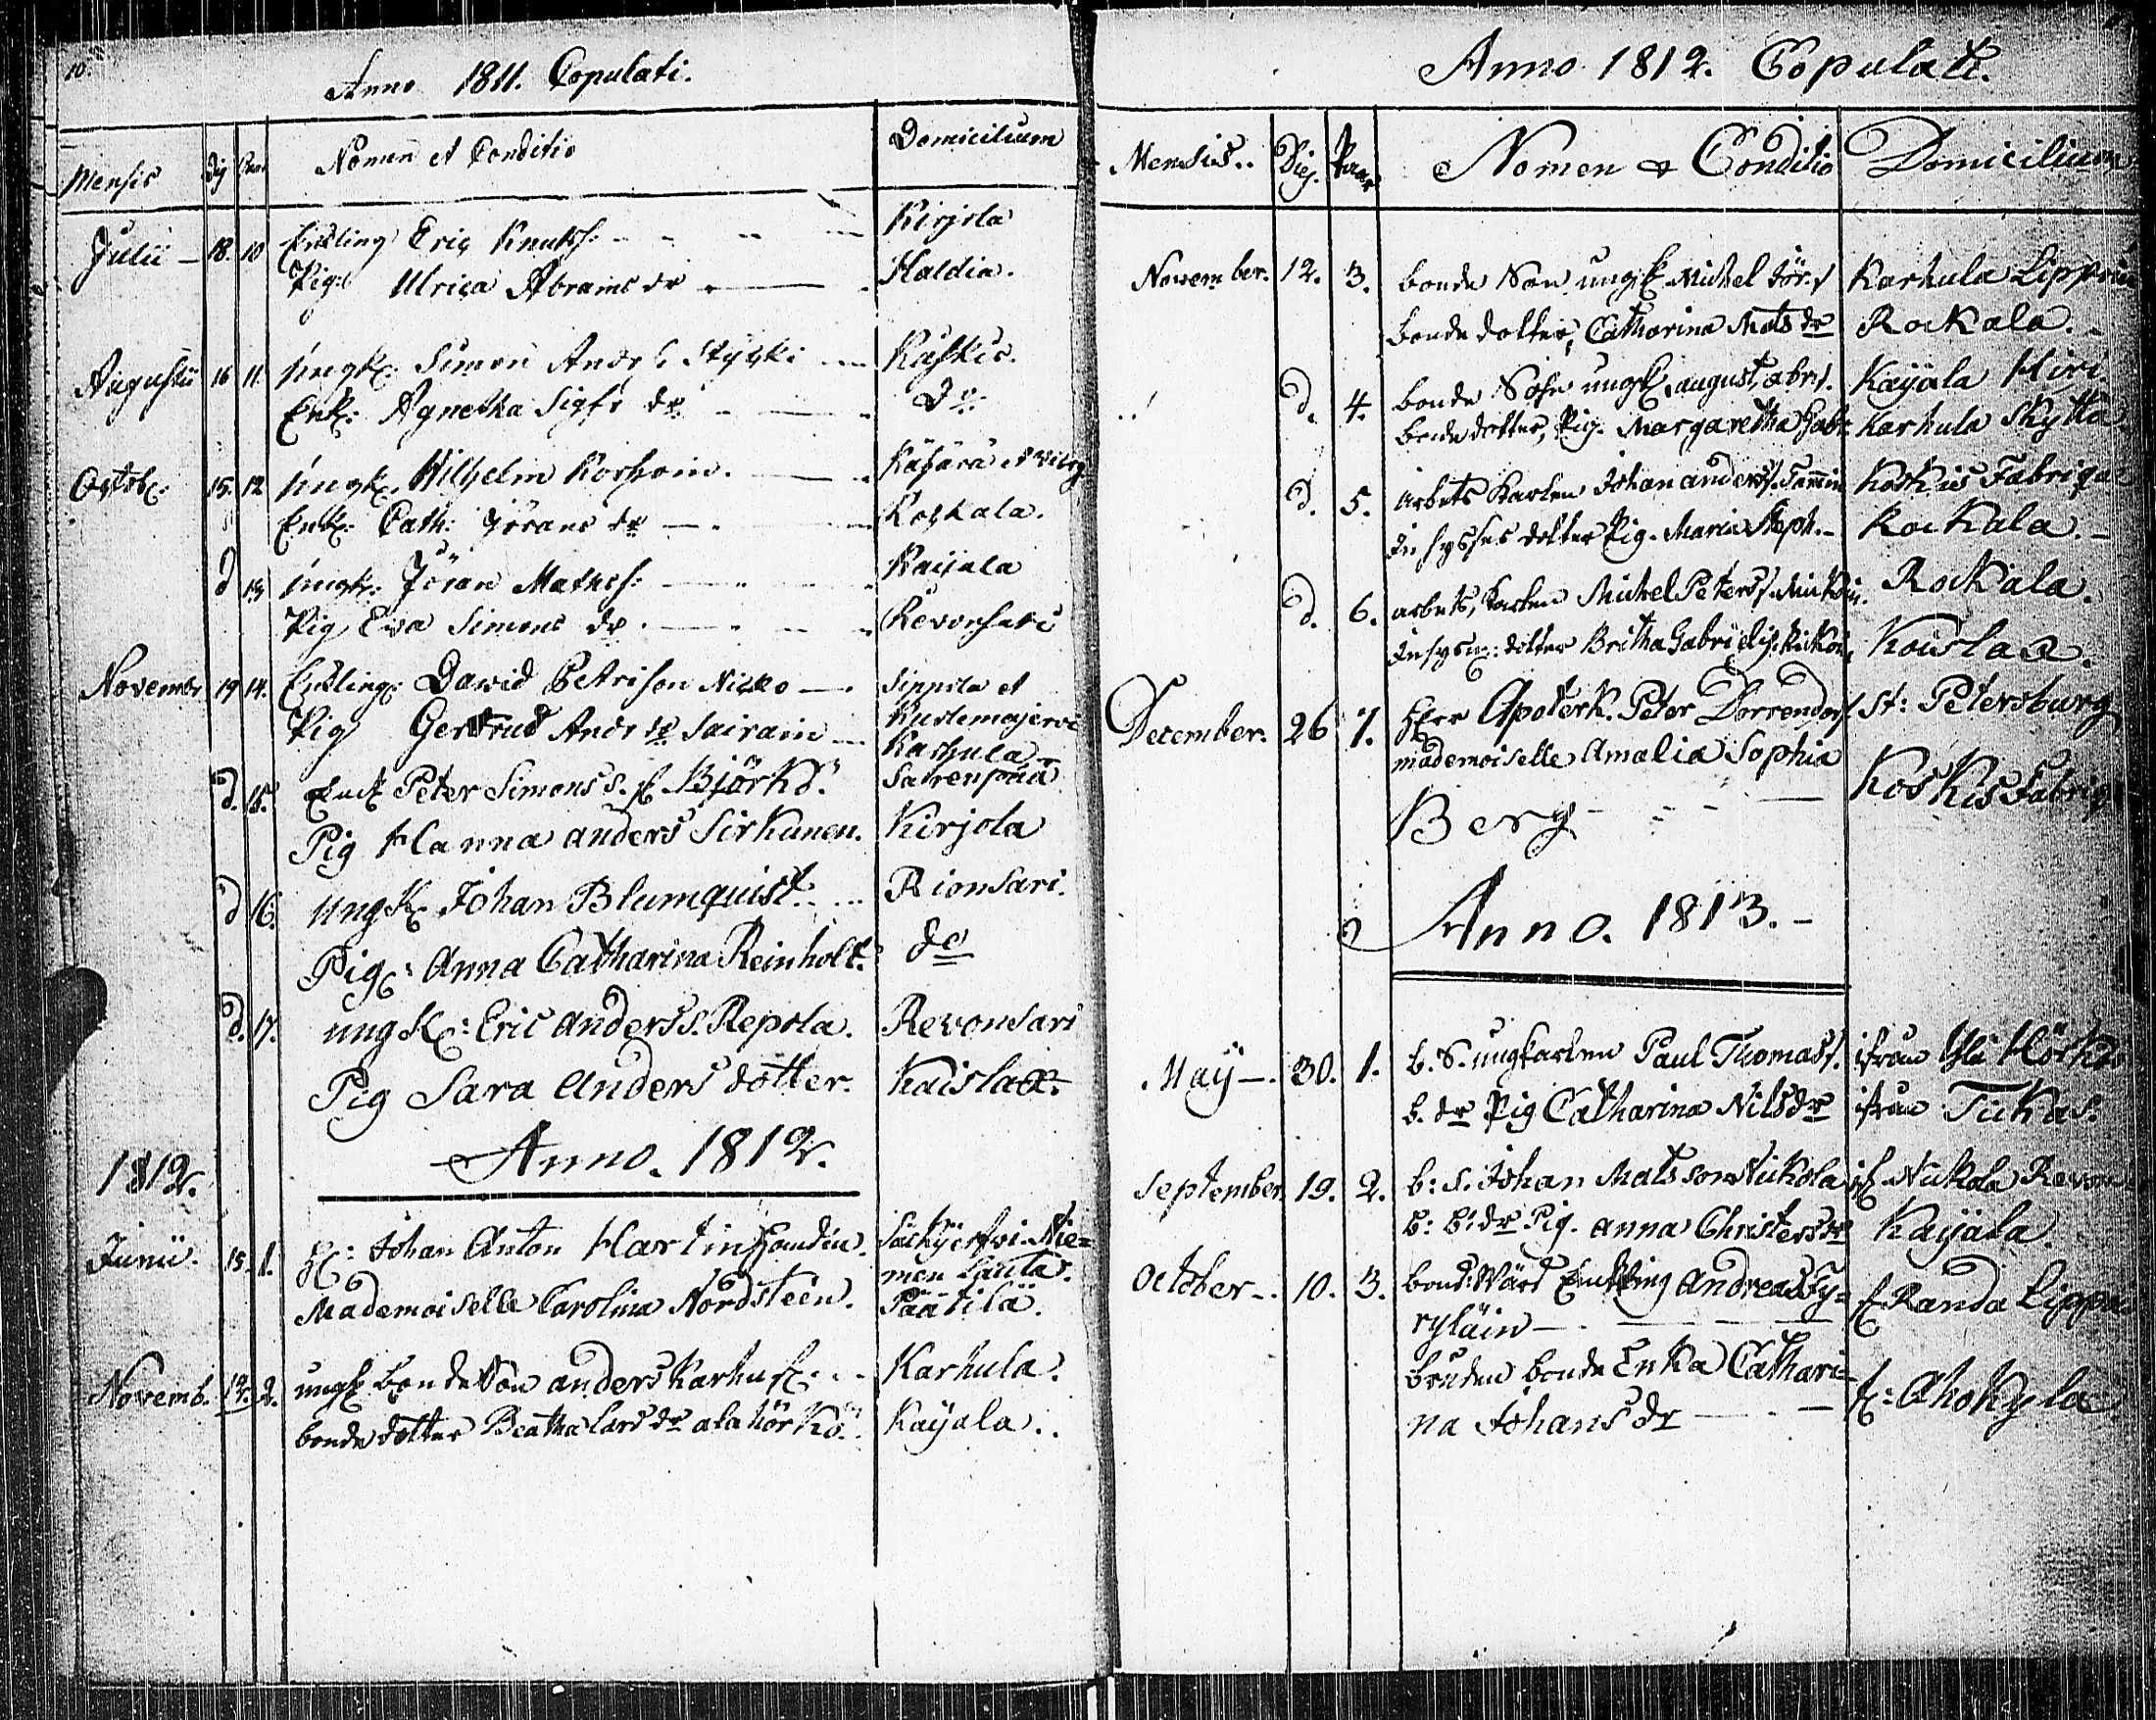 10.
Anno 1811. Copulati.
Mensis Dij Par. Nomen et Conditio Domicilium
Julii 18. 10 Enkling Eric Knutss: Kirjola
Pig: Ulrica Abrams dr Haldia.
Augustii 16 11. Ungk: Simon Andrs Styski
Enk: Agnetha Sigfr dr. Do.
Octobr. 15. 12 Ungk. Wilhelm
Enk: Cath: Görans dr Kockala.
d 13 Ungk: Jöran Matss: Kaijala
Pig Eva Simons dr. Revonsari
Novembr 19 14. Enkling: David Petrison Nicko Sippola et
Kuolemajervi
Pig Gertrud Andr dr Sairain Karhula
d. 15. Enck Peter Simons s. f. Björkö. Satrenpää
Pig Hanna anders Sirkunen. Kirjola
d 16. Ungk Johan Blumquist. Rionsari.
Pig: Anna Catharina Reinholt. do
d. 17. ungk: Eric anderss. Repola. Revonsari
Pig Sara Anders dotter. Kaislax.
1812. Anno. 1812.
Junii. 15. 1. H: Johan Anton Hartin Säckjerfvi Nie=
men Lauta.
Mademoiselle Carolina Nordsteen. Päätilä.
Novemb. 12. 2. ungk bonde Son anders Karhu Karhula.
bonde dotter Beatha Lars dr ala hörkö. Kayala..
Anno 1812. Copulati.
Mensis.. Dij. Paar Nomen & Conditio Domicilium
November. 12. 3. bonde Son ungk Michel Jör.s Karhula Lippoin
bonde dotter, Catharina Mats dr Rockala.
d. 4. bonde Sohn ungk august, abr.s. Kayala Hiri.
bonde dotter, Pig. Margaretha Gabr. Karhula Skyttä
d. 5. arbets Karlen Johan anders s. Koskis Fabriqu
Inhyses dotter Pig. Maria Steph. Rockala.
d. 6. arbets, Karlen Michel Peters s. Rockala.
Inhysn: dotter Britha Gabriels. Kaislax.
December. 26 7. Herr Apoterk. Peter Dorrendorf St: Petersburg
mademoiselle Amalia Sophia
Berg Koskis Fabriq
Anno. 1813.
May 30. 1. b. S. ungkarlen Paul Thomas s. ifrån Ylä Hörkö
b. dr Pig Catharina Nils dr ifrån Tukas.
September. 19. 2. b: S. Johan Matsson Nickola if Nickola Revon
b: dr Pig. anna Christers dr Kayala.
October. 10. 3. bond: Wärd Enkling Andreas Ty=
ryläin f. Randa Lippa
bruden bonde Enka Cathari=
na Johans dr f: Ahokyla